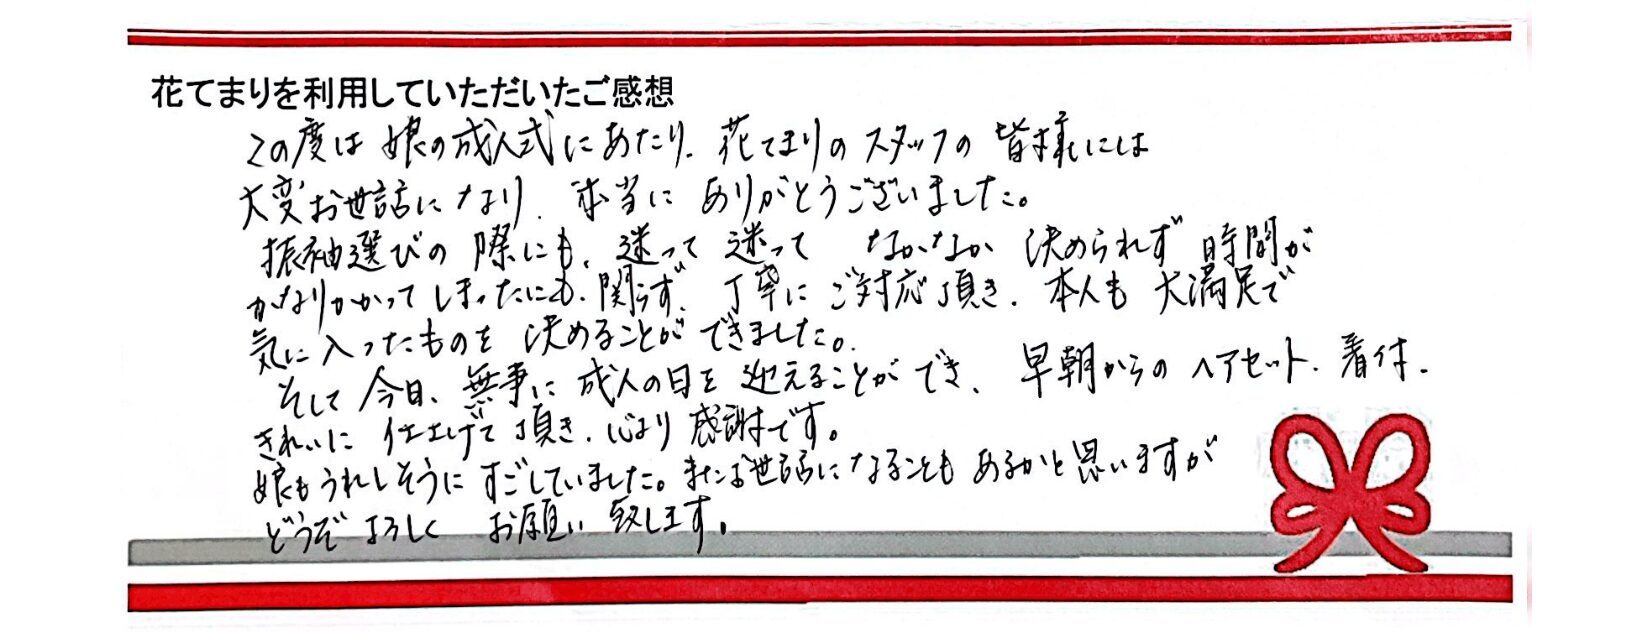 花てまりを利用していただいたご感想
この度は娘の成人式にあたり、花てまりのスタッフの皆様には
大変お世話になり、本当にありがとうございました。
振袖選びの際にも、迷って迷って なかなか決められず時間が
かなりかかってしまったにも関らず、丁寧にご対応頂き、本人も大満足で
気に入ったものを決めることができました。
そして今日、無事に成人の日を迎えることができ、早朝からのヘアセット、着付、
きれいに仕上げて頂き、心より感謝です。
娘もうれしそうにすごしていました。またお世話になることもあるかと思いますが
どうぞよろしくお願い致します。